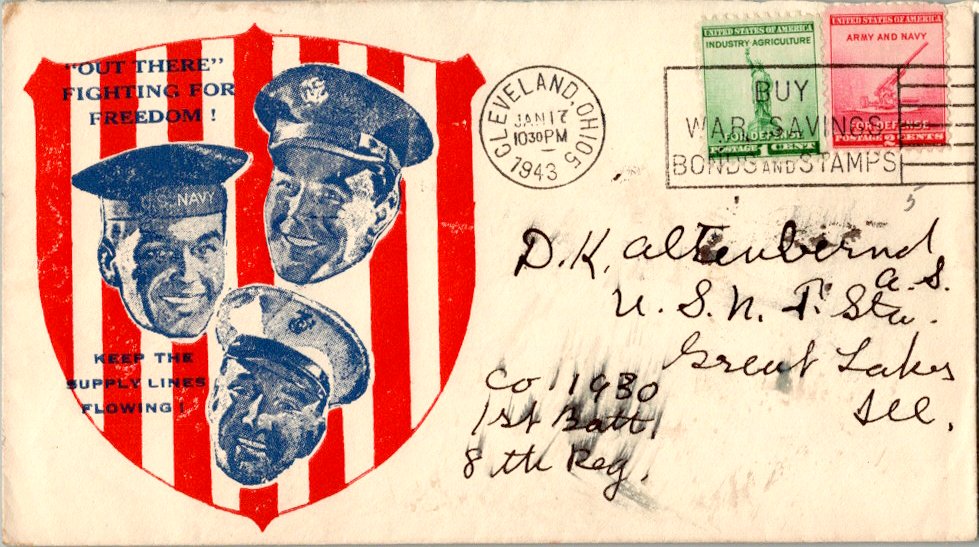 "OUT THERE"
FIGHTING FOR
FREEDOM !
U.S. NAVY
KEEP THE
SUPPLY LINES
FLOWING !
CLEVELAND, OHIO
JAN 17
10 30 PM
1943
BUY
WAR SAVINGS
BONDS AND STAMPS
UNITED STATES OF AMERICA
INDUSTRY AGRICULTURE
FOR DEFENSE
POSTAGE 1 CENT
UNITED STATES OF AMERICA
ARMY AND NAVY
FOR DEFENSE
POSTAGE 2 CENTS
5
D. K. Altenbernd
A. S.
U. S. N. T. Sta.
Great Lakes
Ill.
Co 1930
1st Batt.
8th Reg.